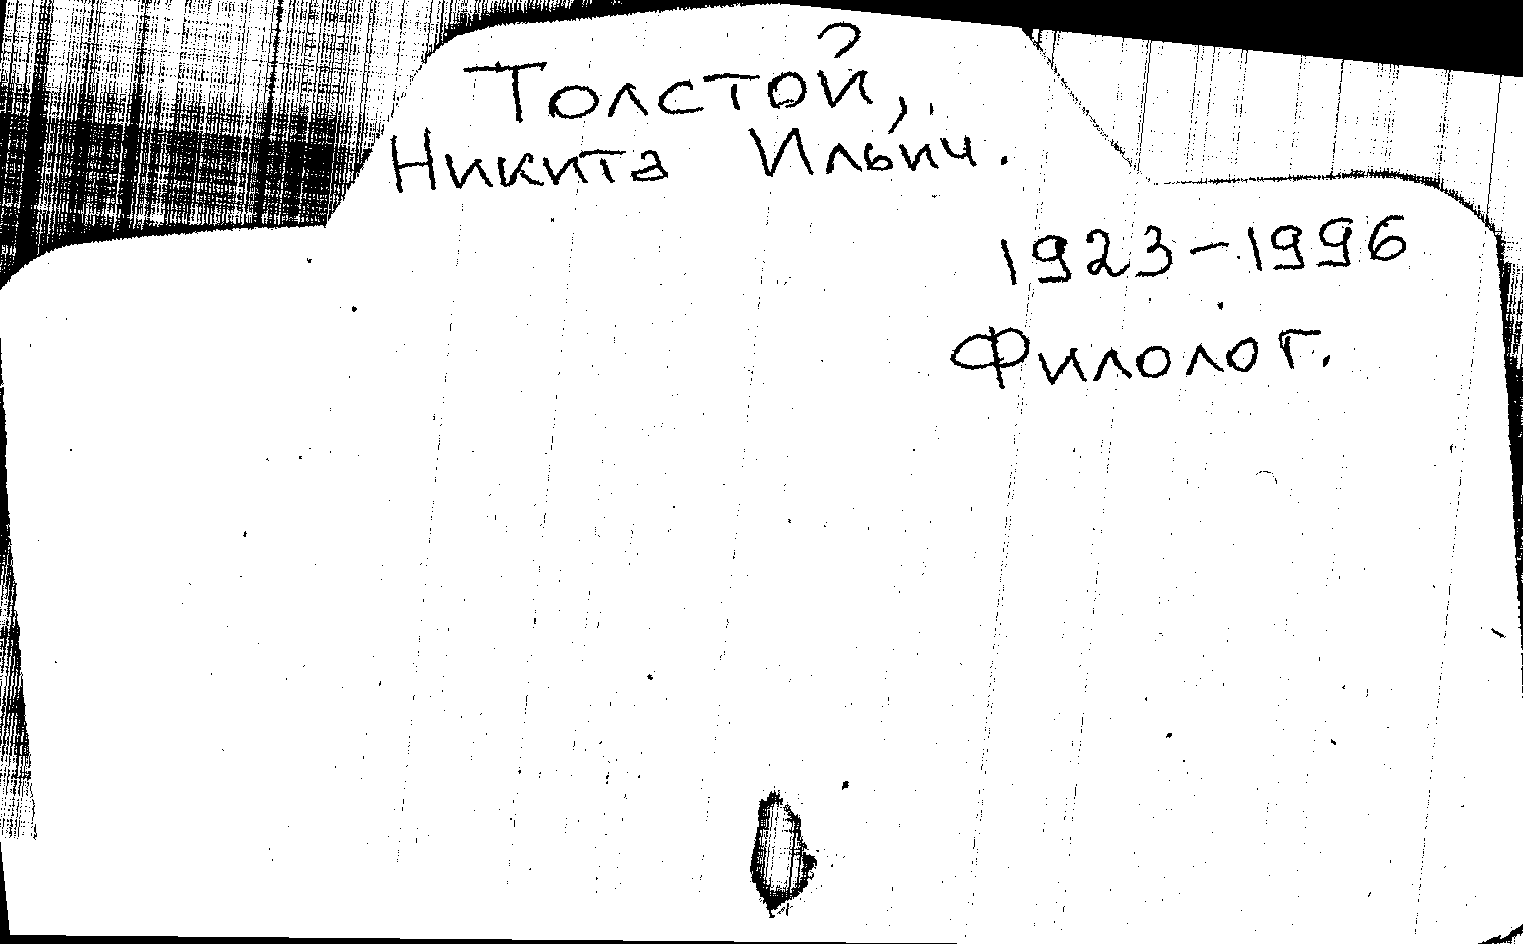 Толстой,
Никита Ильич.
1923-1996
Филолог.